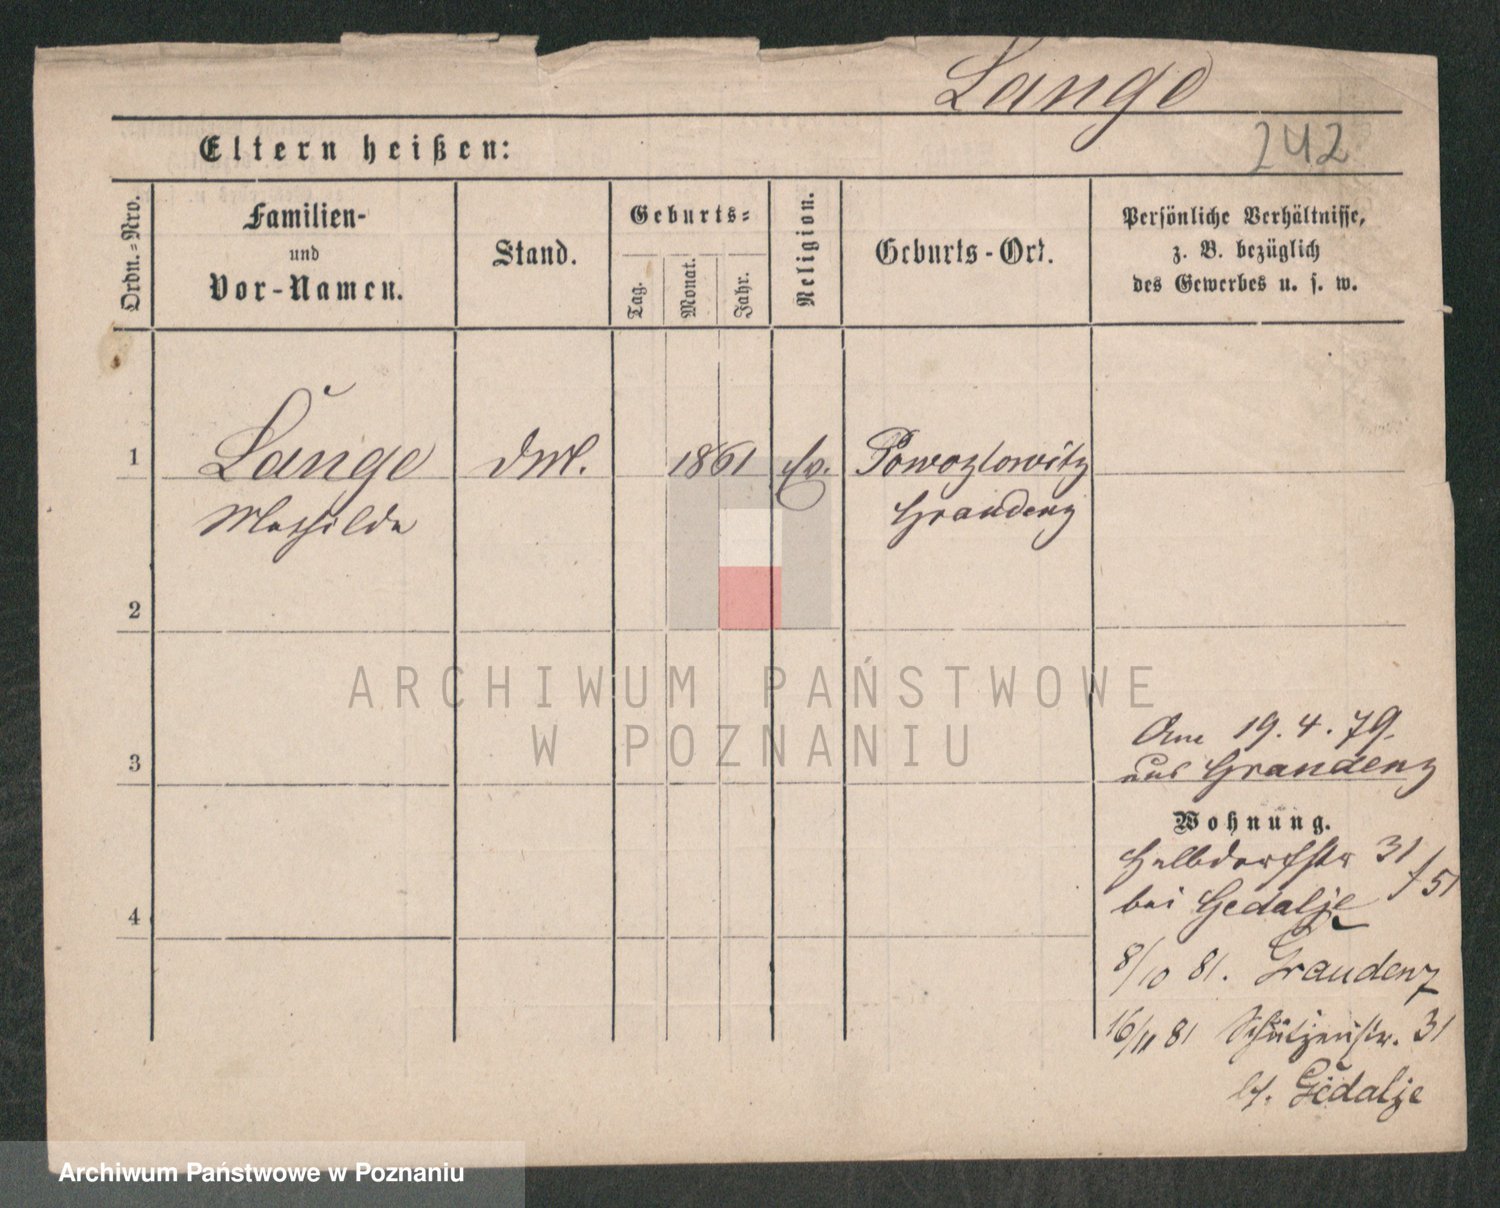 Lange
242
Eltern heißen:
Ordn.-Nro.
Familien-
und
Vor-Namen.
Stand.
Geburts-
Tag.
Monat.
Jahr.
Religion.
Geburts-Ort.
Persönliche Verhältnisse,
z. B. bezüglich
des Gewerbes u. s. w.
1
Lange
1861
Ev.
Mathilde
Graudenz
2
ARCHIWUM PAŃSTWOWE
W POZNANIU
Am 19.4.79.
aus Graudenz
3
Wohnung.
Halbdorfstr 31
bei Gedalje
4
8/10 81. Graudenz
16/11 81 Schützenstr. 31
b/. Gedalje
Archiwum Państwowe w Poznaniu